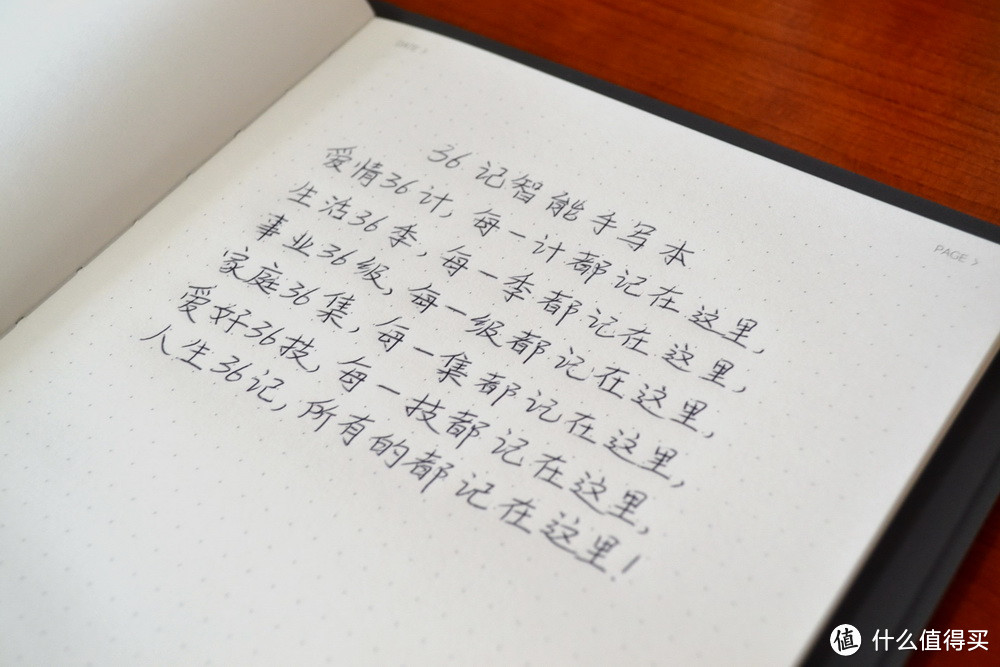 DATE >
PAGE >
36记智能手写本
爱情36计,每一计都记在这里,
生活36季,每一季都记在这里,
事业36级,每一级都记在这里,
家庭36集,每一集都记在这里,
爱好36技,每一技都记在这里,
人生36记,所有的都记在这里!
值 什么值得买